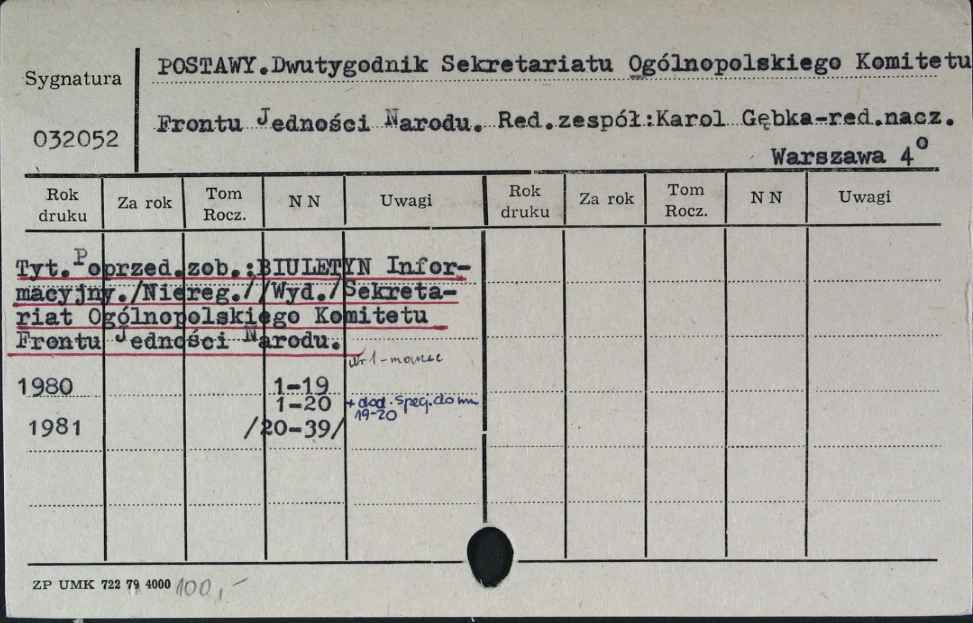 Sygnatura
032052
POSTAWY.Dwutygodnik Sekretariatu Ogólnopolskiego Komitetu
Frontu Jedności Narodu. Red.zespół:Karol Gębka-red.nacz.
Warszawa 4°
Rok druku Za rok Tom Rocz. N N Uwagi Rok druku Za rok Tom Rocz. N N Uwagi
Tyt.Poprzed.zob.:BIULETYN Infor-
macyjny./Niereg.//Wyd./Sekreta-
riat Ogólnopolskiego Komitetu
Frontu Jedności Narodu.
nr 1 - marzec
1980 1-19
1-20 + dod. specj. do nru
19-20
1981 /20-39/
ZP UMK 722 79 4000 100,-